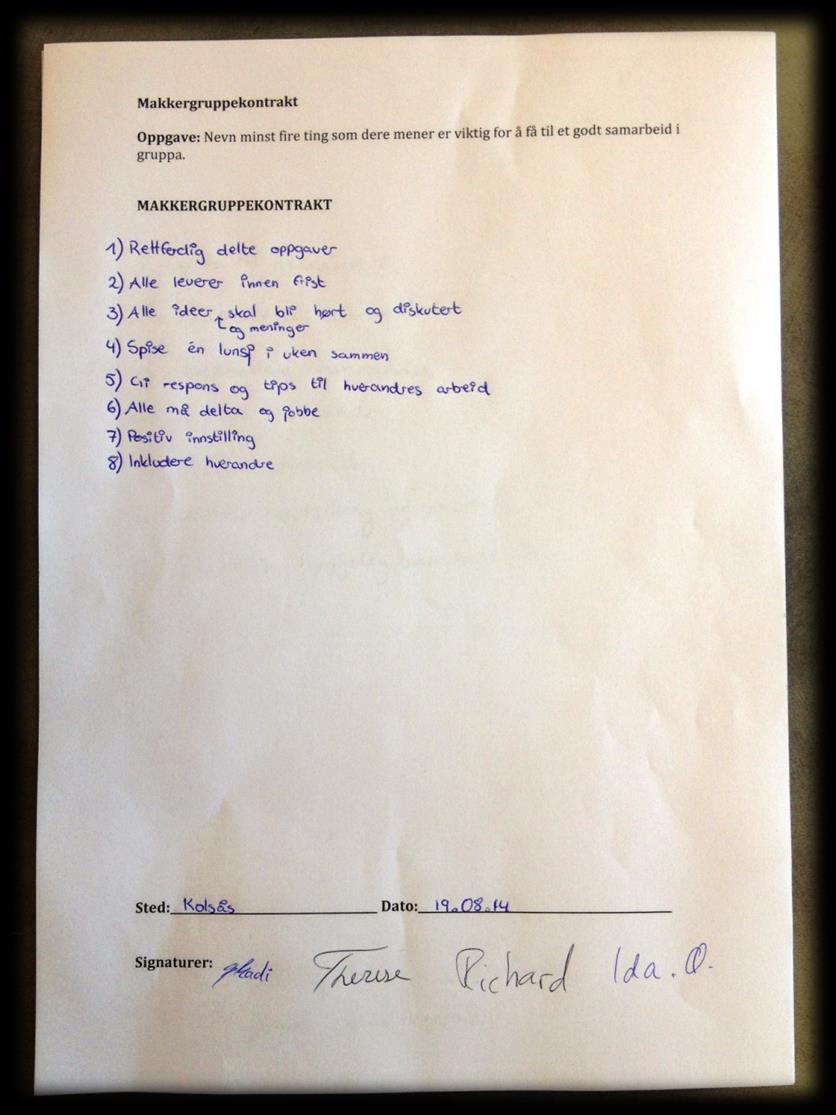 Makkergruppekontrakt
Oppgave: Nevn minst fire ting som dere mener er viktig for å få til et godt samarbeid i
gruppa.
MAKKERGRUPPEKONTRAKT
1) Rettferdig delte oppgaver
2) Alle leverer innen frist
3) Alle ideer skal bli hørt og diskutert
og meninger
4) Spise én lunsj i uken sammen
5) Gi respons og tips til hverandres arbeid
6) Alle må delta og jobbe
7) Positiv innstilling
8) Inkludere hverandre
Sted: Kolsås Dato: 19.08.14
Signaturer: Therese Richard Ida. O.